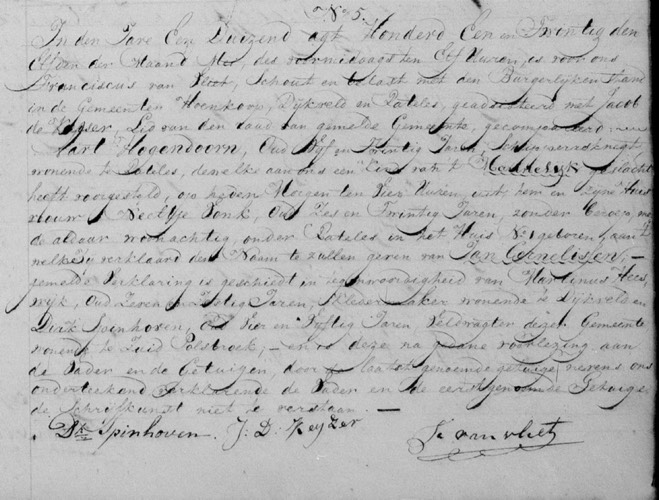 No 5.
In den Jare Een Duizend agt Honderd Een en Twintig den
Elfden der Maand Mei, des voormiddags ten Elf Uuren, is voor ons
Franciscus van Vliet, Schout en belast met den Burgerlyken Stand
in de Gemeenten Hoenkoop, Dykveld en Rateles, geadsisteerd met Jacob
de Keyser, Lid van den Raad van gemelde Gemeente, gecompareerd
Aart Hogendoorn, Oud Vyf en Twintig Jaren,
wonende te Rateles, dewelke aan ons een Kind van 't Mannelyk geslacht
heeft voorgesteld, op heden Morgen ten Vier Uuren, uit hem en zyne Huis
vrouw Neeltje Vonk, Oud Zes en Twintig Jaren, zonder beroep, me
de aldaar woonachtig, onder Rateles in het Huis No 1 geboren, aan 't
welke hy verklaard den Naam te zullen geven van Jan Cornelissen, —
gemelde Verklaring is geschied in tegenwoordigheid van Martinus Hees
wyk, Oud Zeven en Jaren, Kleder maker wonende te Dykveld en
Dirk Spinhoven, Oud Vier en Vyftig Jaren, Veldwagter dezer Gemeente
wonende te Zuid Polsbroek, — en is deze na gedane voorlezing aan
de Vader en de Getuigen, door de laatst genoemde getuige nevens ons
onderteekend verklarende de Vader en de eerstgenoemde Getuige
de Schryfkunst niet te verstaan. —
Dk Spinhoven. J: D: Keyzer
F: van vliet